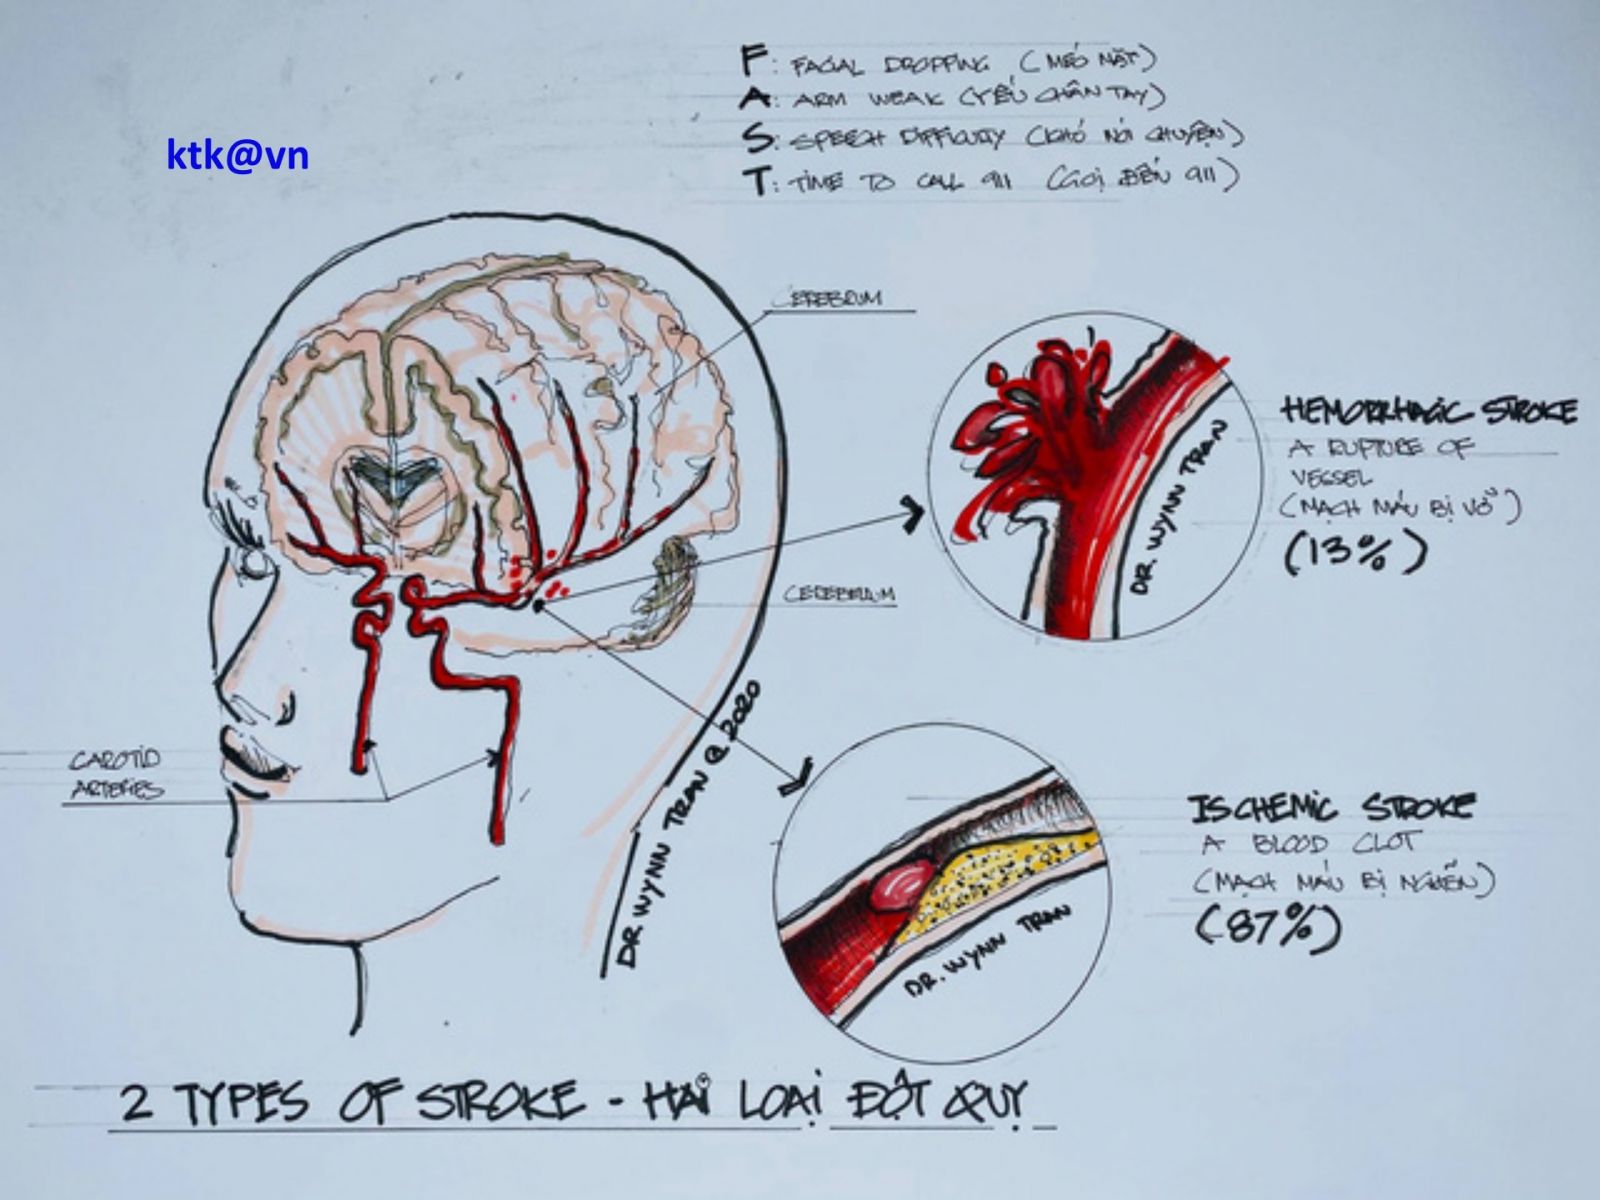 F: FACIAL DROPPING (MÉO MẶT)
A: ARM WEAK (YẾU CHÂN TAY)
S: SPEECH DIFFICULTY (KHÓ NÓI CHUYỆN)
T: TIME TO CALL 911 (GỌI ĐẾN 911)
ktk@vn
CEREBRUM
HEMORRHAGIC STROKE
A RUPTURE OF
VESSEL
(MẠCH MÁU BỊ VỠ)
(13%)
DR. WYNN TRAN
CEREBELLUM
CAROTID
ARTERIES
DR. WYNN TRAN @ 2020
ISCHEMIC STROKE
A BLOOD CLOT
(MẠCH MÁU BỊ NGHẼN)
(87%)
DR. WYNN TRAN
2 TYPES OF STROKE - HAI LOẠI ĐỘT QUỴ